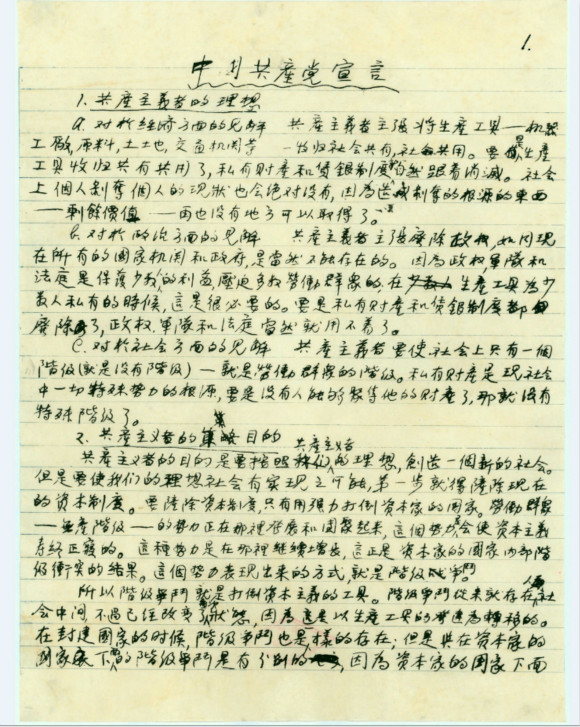 1.
中国共產党宣言
1. 共產主義者的理想
a. 对於经济方面的见解 共產主義者主張将生產工具——机器
工廠，原料，土地，交通机関等——物归社会共有，社会共用。要是生產
工具收归共有共用了，私有财產和賃銀制度當然跟着消滅。社会
上個人剝奪個人的現狀也会绝对没有，因為造成剝奪的根源的東西
——剩餘價值——再也没有地方可以取得了。
b. 对於政治方面的见解 共產主義者主張廢除政权，如同現
在所有的国家机関和政府，是當然不能存在的。因為政权，軍隊和
法庭是保護少数的利益，壓迫多数勞働群眾的，在生產工具為少
数人私有的時候，這是很必要的。要是私有财產和賃銀制度都
廢除了，政权、軍隊和法庭當然就用不着了。
C. 对於社会方面的见解 共產主義者要使社会上只有一個
階级(就是没有階级)——就是勞働群眾的階级。私有财產是現社会
中一切特殊势力的根源，要是没有人能够聚積他的财產了，那就没有
特殊階级了。
2. 共產主义者的目的
共產主義者的目的是要按照共產主义者的理想，創造一個新的社会。
但是要使我們的理想社会有实現之可能，第一步就得鏟除現在
的资本制度。要鏟除资本制度，只有用强力打倒资本家的国家。勞働群眾
——無產階级——的势力正在那裡發展和團聚起来，這個势力会使资本主義
寿终正寝的。這種势力是在那裡继續增長，這正是资本家的国家内部階
级衝突的结果。這個势力表現出来的方式，就是階级战争。
所以階级争鬥就是打倒资本主義的工具。階级争鬥從来就存在人類社
会中间，不過已经改变狀態，因為這是以生產工具的發達為轉移的。
在封建国家的时候，階级争鬥也是一樣的存在；但是與在资本家的
国家底下的階级争鬥是有分别的，因為资本家的国家下面